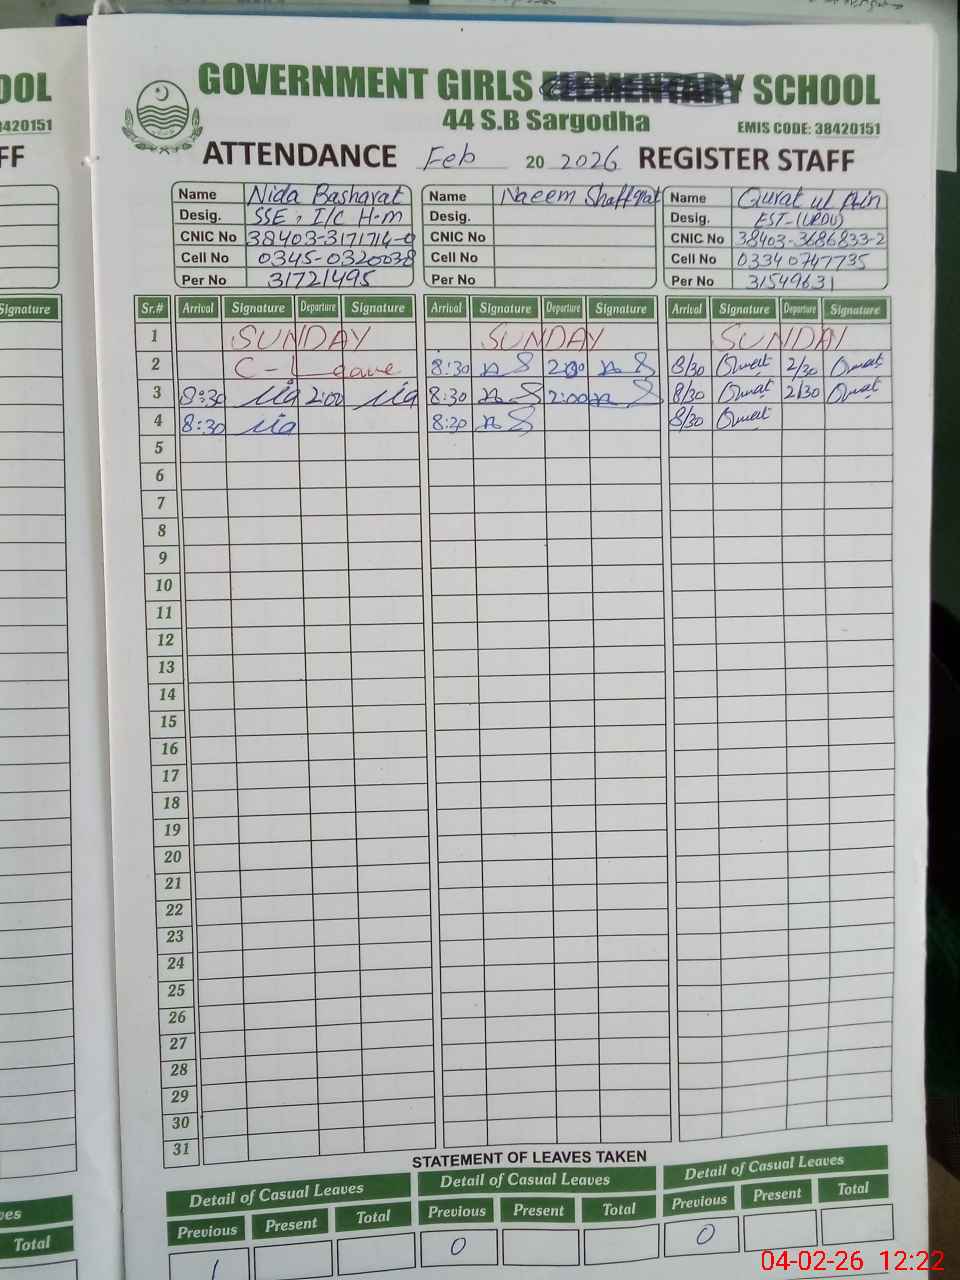 OOL
38420151
FF
Signature
Total
GOVERNMENT GIRLS ELEMENTARY SCHOOL
44 S.B Sargodha
EMIS CODE: 38420151
ATTENDANCE Feb 20 2026 REGISTER STAFF
Name Nida Basharat Name Naeem Shaffqat Name Qurat ul Ain
Desig. SSE, I/C H.m Desig. Desig. EST-(URDU)
CNIC No 38403-3171714-0 CNIC No CNIC No 38403-3686833-2
Cell No 0345-0320038 Cell No Cell No 03340747735
Per No 31721495 Per No Per No 31549631
Sr.# Arrival Signature Departure Signature Arrival Signature Departure Signature Arrival Signature Departure Signature
1 SUNDAY SUNDAY SUNDAY
2 C-Leave 8:30 2:00 8/30 Qurat 2/30 Qurat
3 8:30 2:00 8:30 2:00 8/30 Qurat 2/30 Qurat
4 8:30 8:30 8/30 Qurat
5
6
7
8
9
10
11
12
13
14
15
16
17
18
19
20
21
22
23
24
25
26
27
28
29
30
31
STATEMENT OF LEAVES TAKEN
Detail of Casual Leaves Detail of Casual Leaves Detail of Casual Leaves
Previous Present Total Previous Present Total Previous Present Total
1 0 0
04-02-26 12:22